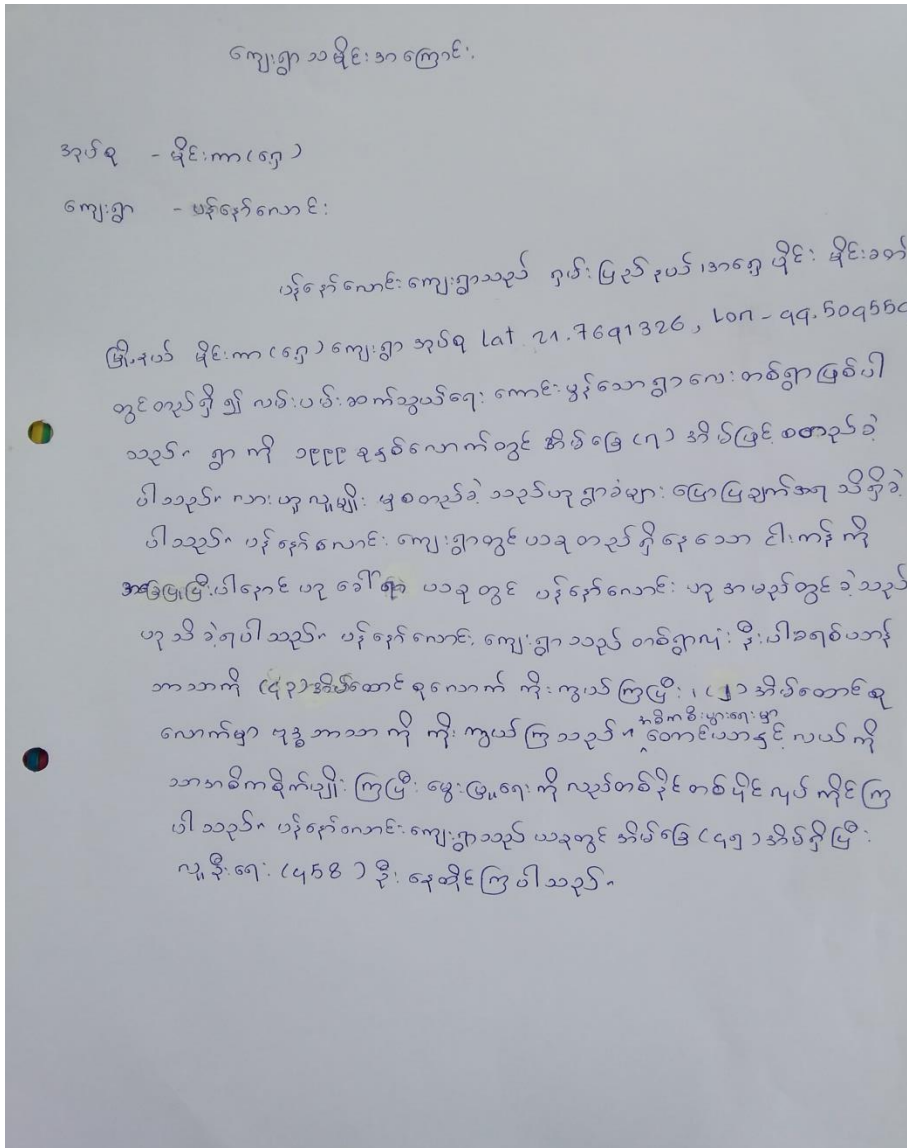 ကျေးရွာသမိုင်းအကြောင်း
အုပ်စု - မိုင်းကာ(ရှေ့)
ကျေးရွာ - ပန်နော်လောင်း
ပန်နော်လောင်းကျေးရွာသည် ရှမ်းပြည်နယ်၊အရှေ့ပိုင်း မိုင်းခတ်
မြို့နယ် မိုင်းကာ(ရှေ့)ကျေးရွာအုပ်စု Lat 21.7691326, Lon - 99.509550
တွင်တည်ရှိ၍ လမ်းပမ်းဆက်သွယ်ရေး ကောင်းမွန်သောရွာလေးတစ်ရွာဖြစ်ပါ
သည်။ ရွာကို ၁၉၉၉ ခုနှစ်လောက်တွင် အိမ်ခြေ(၇)အိမ်ဖြင့် စတည်ခဲ့
ပါသည်။ လားဟူလူမျိုး မှစတည်ခဲ့သည်ဟုရွာခံများ ပြောပြချက်အရ သိရှိခဲ့
ပါသည်။ ပန်နော်လောင်း ကျေးရွာတွင်ယခုတည်ရှိနေသော ငါးကန်ကို
အခြေပြုပြီး ယခုတွင် ပန်နော်လောင်း ဟုအမည်တွင်ခဲ့သည်
ဟုသိခဲ့ရပါသည်။ ပန်နော်လောင်းကျေးရွာသည် တစ်ရွာလုံးနီးပါးခရစ်ယာန်
ဘာသာကို (၄၃)အိမ်ထောင်စုလောက် ကိုးကွယ်ကြပြီး၊(၂)အိမ်ထောင်စု
လောက်မှာ ဗုဒ္ဓဘာသာကို ကိုးကွယ်ကြသည်။ အဓိကစီးပွားရေးမှာ တောင်ယာနှင့်လယ်ကို
သာအဓိကစိုက်ပျိုးကြပြီး မွေးမြူရေးကိုလည်းတစ်နိုင်တစ်ပိုင်လုပ်ကိုင်ကြ
ပါသည်။ ပန်နော်လောင်းကျေးရွာသည် ယခုတွင် အိမ်ခြေ(၄၅)အိမ်ရှိပြီး
လူဦးရေ (458) ဦး နေထိုင်ကြပါသည်။